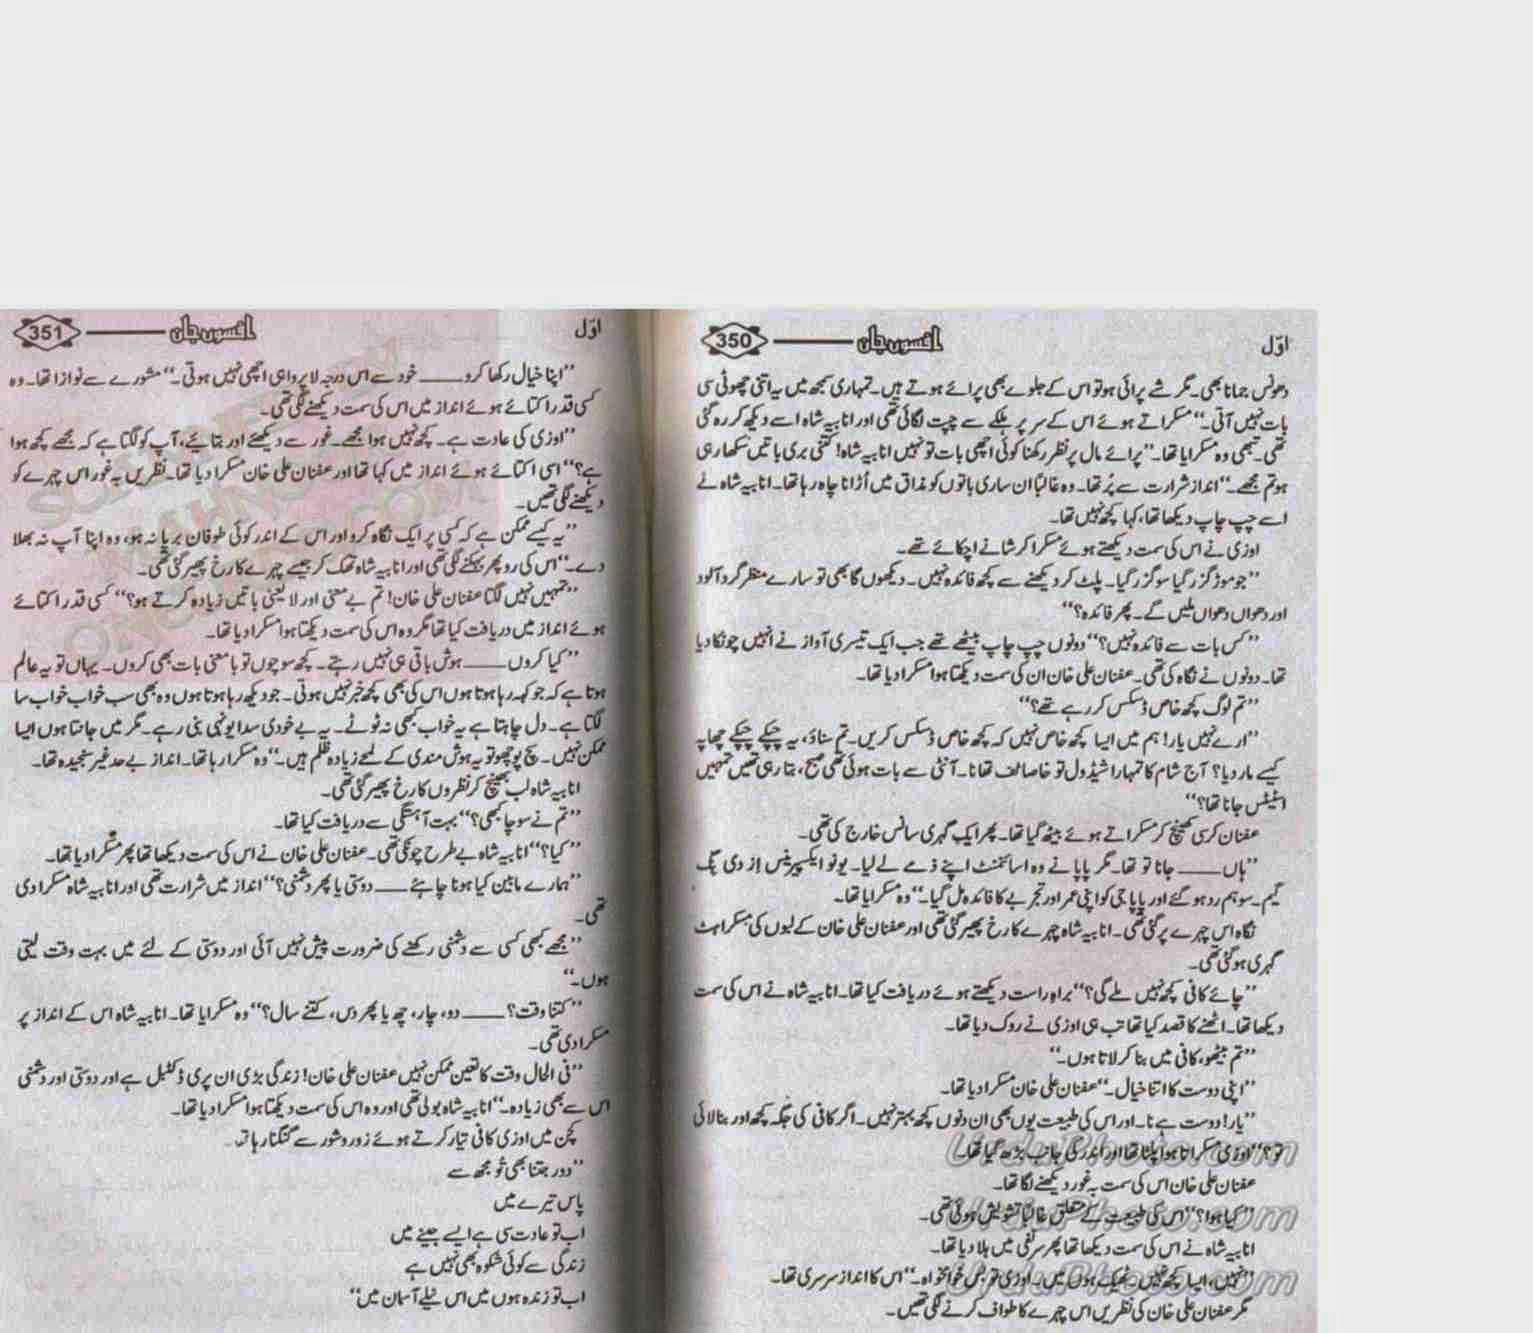 اوّل
افسوں جاں
350
دھونس جمانا بھی۔ مگر شے پرائی ہو تو اس کے جلوے بھی پرائے ہوتے ہیں۔ تمہاری سمجھ میں یہ اتنی چھوٹی سی
بات نہیں آتی۔‘‘ مسکراتے ہوئے اس کے سر پر ہلکے سے چپت لگائی تھی اور انابیہ شاہ اسے دیکھ کر رہ گئی
تھی۔ تبھی وہ مسکرایا تھا۔ ’’پرائے مال پر نظر رکھنا کوئی اچھی بات تو نہیں انابیہ شاہ! کتنی بری باتیں سکھا رہی
ہو تم مجھے۔‘‘ انداز شرارت سے پُر تھا۔ وہ غالباً ان ساری باتوں کو مذاق میں اُڑانا چاہ رہا تھا۔ انابیہ شاہ نے
اسے چپ چاپ دیکھا تھا، کہا کچھ نہیں تھا۔
اوزی نے اس کی سمت دیکھتے ہوئے مسکرا کر شانے اچکائے تھے۔
’’جو موڑ گزر گیا سو گزر گیا۔ پلٹ کر دیکھنے سے کچھ فائدہ نہیں۔ دیکھوں گا بھی تو سارے منظر گرد آلود
اور دھواں دھواں ملیں گے۔ پھر فائدہ؟‘‘
’’کس بات سے فائدہ نہیں؟‘‘ دونوں چپ چاپ بیٹھے تھے جب ایک تیسری آواز نے انہیں چونکا دیا
تھا۔ دونوں نے نگاہ کی تھی۔ عفنان علی خان ان کی سمت دیکھتا ہوا مسکرا دیا تھا۔
’’تم لوگ کچھ خاص ڈسکس کر رہے تھے؟‘‘
’’ارے نہیں یار! ہم میں ایسا کچھ خاص نہیں کہ کچھ خاص ڈسکس کریں۔ تم سناؤ، یہ چپکے چپکے چھاپہ
کیسے مار دیا؟ آج شام کا تمہارا شیڈول تو خاصا ٹف تھا نا۔ آنٹی سے بات ہوئی تھی صبح، بتا رہی تھیں تمہیں
اسٹیٹس جانا تھا؟‘‘
عفنان کرسی کھینچ کر مسکراتے ہوئے بیٹھ گیا تھا۔ پھر ایک گہری سانس خارج کی تھی۔
’’ہاں ــــــ جانا تو تھا۔ مگر پاپا نے وہ اسائنمنٹ اپنے ذمے لے لیا۔ یو نو ایکسپرینس از دی بگ
گیم۔ سو ہم رد ہو گئے اور پاپا جی کو اپنی عمر اور تجربے کا فائدہ مل گیا۔‘‘ وہ مسکرایا تھا۔
نگاہ اس چہرے پر گئی تھی۔ انابیہ شاہ چہرے کا رخ پھیر گئی تھی اور عفنان علی خان کے لبوں کی مسکراہٹ
گہری ہو گئی تھی۔
’’چائے کافی کچھ نہیں ملے گی؟‘‘ براہ راست دیکھتے ہوئے دریافت کیا تھا۔ انابیہ شاہ نے اس کی سمت
دیکھا تھا۔ اٹھنے کا قصد کیا تھا تب ہی اوزی نے روک دیا تھا۔
’’تم بیٹھو، کافی میں بنا کر لاتا ہوں۔‘‘
’’اپنی دوست کا اتنا خیال۔‘‘ عفنان علی خان مسکرا دیا تھا۔
’’یار! دوست ہے نا۔ اور اس کی طبیعت یوں بھی ان دنوں کچھ بہتر نہیں۔ اگر کافی کی جگہ کچھ اور بنا لائی
تو؟‘‘ اوزی مسکراتا ہوا پلٹا تھا اور اندر کی جانب بڑھ گیا تھا۔
عفنان علی خان اس کی سمت بہ غور دیکھنے لگا تھا۔
’’کیا ہوا؟‘‘ اس کی طبیعت کے متعلق غالباً تشویش ہوئی تھی۔
انابیہ شاہ نے اس کی سمت دیکھا تھا پھر سر نفی میں ہلا دیا تھا۔
’’نہیں، ایسا کچھ نہیں۔ ٹھیک ہوں میں۔ اوزی تو بس خوامخواہ۔‘‘ اس کا انداز سرسری تھا۔
مگر عفنان علی خان کی نظریں اس چہرے کا طواف کرنے لگی تھیں۔
UrduPhotos.com
UrduPhotos.com
UrduPhotos.com
اوّل
افسوں جاں
351
’’اپنا خیال رکھا کرو ــــــ خود سے اس درجہ لاپرواہی اچھی نہیں ہوتی۔‘‘ مشورے سے نوازا تھا۔ وہ
کسی قدر اکتائے ہوئے انداز میں اس کی سمت دیکھنے لگی تھی۔
’’اوزی کی عادت ہے۔ کچھ نہیں ہوا مجھے۔ غور سے دیکھئے اور بتائیے، آپ کو لگتا ہے کہ مجھے کچھ ہوا
ہے؟‘‘ اسی اکتائے ہوئے انداز میں کہا تھا اور عفنان علی خان مسکرا دیا تھا۔ نظریں بہ غور اس چہرے کو
دیکھنے لگی تھیں۔
’’یہ کیسے ممکن ہے کہ کسی پر ایک نگاہ کرو اور اس کے اندر کوئی طوفان برپا نہ ہو، وہ اپنا آپ نہ بھلا
دے۔‘‘ اس کی رو پھر بہکنے لگی تھی اور انابیہ شاہ تھک کر جیسے چہرے کا رخ پھیر گئی تھی۔
’’تمہیں نہیں لگتا عفنان علی خان! تم بے معنی اور لایعنی باتیں زیادہ کرتے ہو؟‘‘ کسی قدر اکتائے
ہوئے انداز میں دریافت کیا تھا مگر وہ اس کی سمت دیکھتا ہوا مسکرا دیا تھا۔
’’کیا کروں ــــــ ہوش باقی ہی نہیں رہتے۔ کچھ سوچوں تو بامعنی بات بھی کروں۔ یہاں تو یہ عالم
ہوتا ہے کہ جو کہہ رہا ہوتا ہوں اس کی بھی کچھ خبر نہیں ہوتی۔ جو دیکھ رہا ہوتا ہوں وہ بھی سب خواب خواب سا
لگتا ہے۔ دل چاہتا ہے یہ خواب کبھی نہ ٹوٹے۔ یہ بے خودی سدا یونہی بنی رہے۔ مگر میں جانتا ہوں ایسا
ممکن نہیں۔ سچ پوچھو تو یہ ہوش مندی کے لمحے زیادہ ظلم ہیں۔‘‘ وہ مسکرا رہا تھا۔ انداز بے حد غیر سنجیدہ تھا۔
انابیہ شاہ لب بھینچ کر نظروں کا رخ پھیر گئی تھی۔
’’تم نے سوچا کبھی؟‘‘ بہت آہستگی سے دریافت کیا تھا۔
’’کیا؟‘‘ انابیہ شاہ بے طرح چونکی تھی۔ عفنان علی خان نے اس کی سمت دیکھا تھا پھر مسکرا دیا تھا۔
’’ہمارے مابین کیا ہونا چاہئے ــــــ دوستی یا پھر دشمنی؟‘‘ انداز میں شرارت تھی اور انابیہ شاہ مسکرا دی
تھی۔
’’مجھے کبھی کسی سے دشمنی رکھنے کی ضرورت پیش نہیں آئی اور دوستی کے لئے میں بہت وقت لیتی
ہوں۔‘‘
’’کتنا وقت؟ ــــــ دو، چار، چھ یا پھر دس، کتنے سال؟‘‘ وہ مسکرایا تھا۔ انابیہ شاہ اس کے انداز پر
مسکرا دی تھی۔
’’فی الحال وقت کا تعین ممکن نہیں عفنان علی خان! زندگی بڑی ان پری ڈکٹبل ہے اور دوستی اور دشمنی
اس سے بھی زیادہ۔‘‘ انابیہ شاہ بولی تھی اور وہ اس کی سمت دیکھتا ہوا مسکرا دیا تھا۔
کچن میں اوزی کافی تیار کرتے ہوئے زور و شور سے گنگنا رہا تھا۔
’’دور جتنا بھی تُو مجھ سے
پاس تیرے میں
اب تو عادت سی ہے ایسے جینے میں
زندگی سے کوئی شکوہ بھی نہیں ہے
اب تو زندہ ہوں میں اس نیلے آسمان میں‘‘